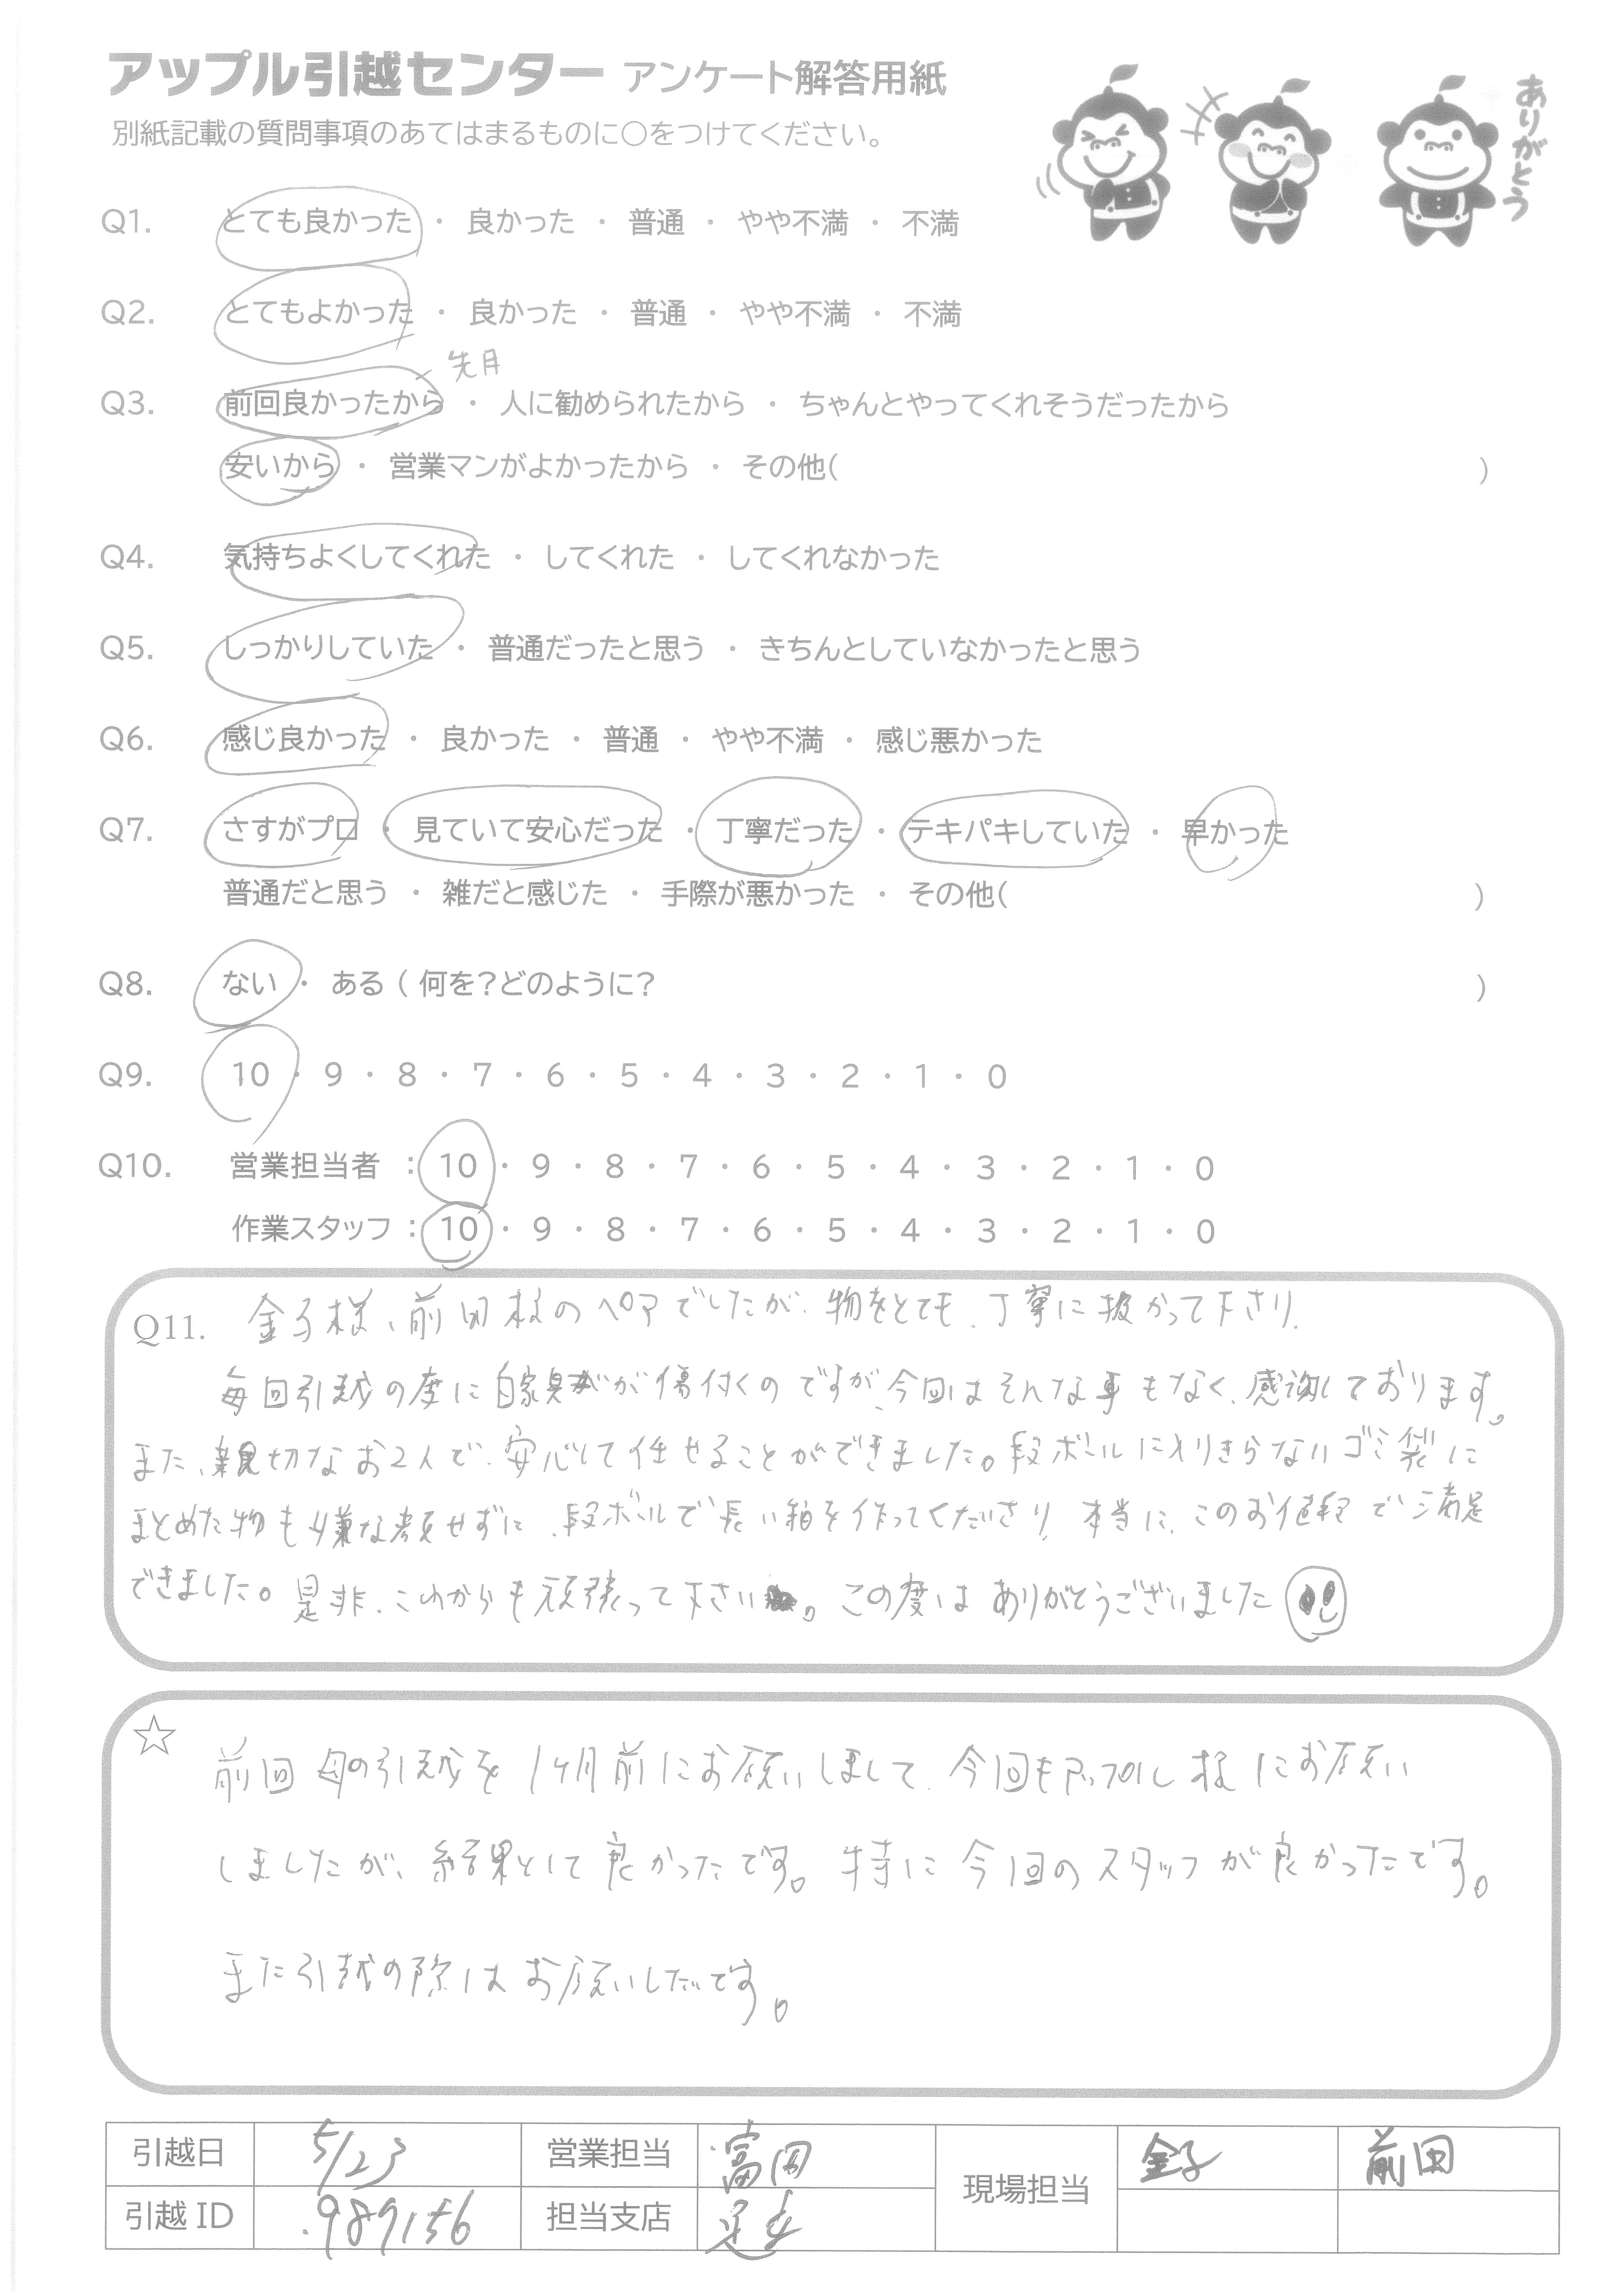 アップル引越センター アンケート解答用紙
別紙記載の質問事項のあてはまるものに○をつけてください。
ありがとう
Q1. とても良かった ・ 良かった ・ 普通 ・ やや不満 ・ 不満
Q2. とてもよかった ・ 良かった ・ 普通 ・ やや不満 ・ 不満
先月
Q3. 前回良かったから ・ 人に勧められたから ・ ちゃんとやってくれそうだったから
安いから ・ 営業マンがよかったから ・ その他( )
Q4. 気持ちよくしてくれた ・ してくれた ・ してくれなかった
Q5. しっかりしていた ・ 普通だったと思う ・ きちんとしていなかったと思う
Q6. 感じ良かった ・ 良かった ・ 普通 ・ やや不満 ・ 感じ悪かった
Q7. さすがプロ ・ 見ていて安心だった ・ 丁寧だった ・ テキパキしていた ・ 早かった
普通だと思う ・ 雑だと感じた ・ 手際が悪かった ・ その他( )
Q8. ない ・ ある ( 何を?どのように? )
Q9. 10 ・ 9 ・ 8 ・ 7 ・ 6 ・ 5 ・ 4 ・ 3 ・ 2 ・ 1 ・ 0
Q10. 営業担当者 : 10 ・ 9 ・ 8 ・ 7 ・ 6 ・ 5 ・ 4 ・ 3 ・ 2 ・ 1 ・ 0
作業スタッフ : 10 ・ 9 ・ 8 ・ 7 ・ 6 ・ 5 ・ 4 ・ 3 ・ 2 ・ 1 ・ 0
Q11. 金子様、前田様のペアでしたが、物をとても、丁寧に扱かって下さり、
毎回引越の度に家具が傷付くのですが、今回はそんな事もなく、感謝しております。
また、親切なお2人で、安心して任せることができました。段ボールに入りきらないゴミ袋に
まとめた物も嫌な顔せずに、段ボールで長い箱を作ってくださり、本当に、このお値段で満足
できました。是非、これからも頑張って下さい。この度はありがとうございました
☆ 前回母の引越を1ヶ月前にお願いしまして、今回もアップル様にお願い
しましたが、結果として良かったです。特に今回のスタッフが良かったです。
また引越の際はお願いしたいです。
引越日 5/23 営業担当 富田 現場担当 金子 前田
引越ID 989156 担当支店 足立